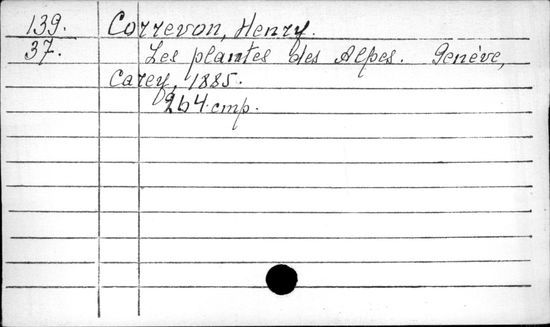 139. Correvon, Henry.
37. Les plantes des Alpes. Genève,
Carey, 1885.
264 cmp.